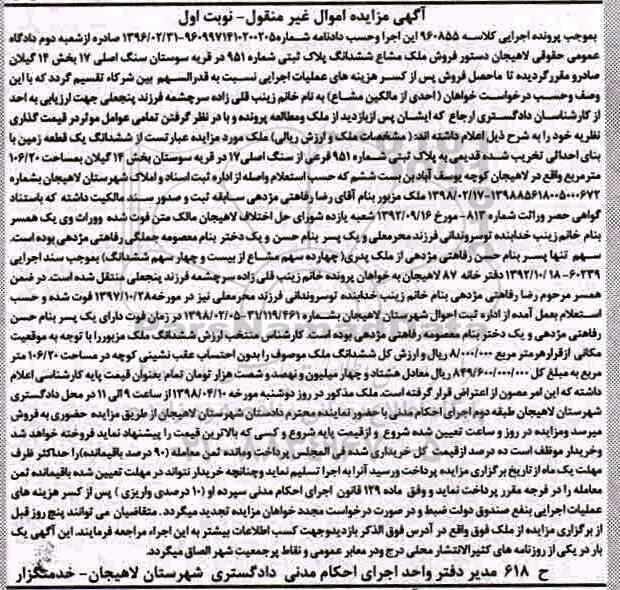 آگهی مزایده اموال غیر منقول- نوبت اول
بموجب پرونده اجرایی کلاسه ۹۶۰۸۵۵ این اجرا وحسب دادنامه شماره۹۶۰۹۹۷۱۴۱۰۲۰۰۲۰۵-۱۳۹۶/۰۲/۳۱ صادره ازشعبه دوم دادگاه
عمومی حقوقی لاهیجان دستور فروش ملک مشاع ششدانگ پلاک ثبتی شماره ۹۵۱ در قریه سوستان سنگ اصلی ۱۷ بخش ۱۴ گیلان
صادرو مقررگردیده تا ماحصل فروش پس از کسر هزینه های عملیات اجرایی نسبت به قدرالسهم بین شرکاء تقسیم گردد که با این
وصف وحسب درخواست خواهان (احدی از مالکین مشاع) به نام خانم زینب قلی زاده سرچشمه فرزند پنجعلی جهت ارزیابی به احد
از کارشناسان دادگستری ارجاع که ایشان پس ازبازدید از ملک ومطالعه پرونده و با در نظر گرفتن تمامی عوامل موثردر قیمت گذاری
نظریه خود را به شرح ذیل اعلام داشته اند:( مشخصات ملک و ارزش ریالی) ملک مورد مزایده عبارتست از ششدانگ یک قطعه زمین با
بنای احداثی تخریب شده قدیمی به پلاک ثبتی شماره ۹۵۱ فرعی از سنگ اصلی۱۷ در قریه سوستان بخش ۱۴ گیلان بمساحت ۱۰۶/۲۰
مترمربع واقع در لاهیجان کوچه یوسف آبادبن بست ششم که حسب استعلام واصله از اداره ثبت اسناد و املاک شهرستان لاهیجان بشماره
۱۳۹۸۸۵۶۱۸۰۰۵۰۰۰۶۷۲-۱۳۹۸/۰۲/۱۷ ملک مزبور بنام آقای رضا رفاهتی مژدهی سابقه ثبت و صدور سند مالکیت داشته که باستناد
گواهی حصر وراثت شماره ۸۱۳- مورخ ۱۳۹۲/۰۹/۱۶ شعبه یازده شورای حل اختلاف لاهیجان مالک متن فوت شده ووراث وی یک همسر
بنام خانم زینب خدابنده توسروندانی فرزند محرمعلی و یک پسر بنام حسن و یک دختر بنام معصومه جملگی رفاهتی مژدهی بوده است.
سهم تنها پسر بنام حسن رفاهتی مژدهی از ملک پدری(چهارده سهم مشاع از بیست و چهار سهم ششدانگ) بموجب سند اجرایی
۶۰۲۳۹-۱۳۹۲/۱۰/۱۸ دفتر خانه ۸۷ لاهیجان به خواهان پرونده خانم زینب قلی زاده سرچشمه فرزند پنجعلی منتقل شده است. در ضمن
همسر مرحوم رضا رفاهتی مژدهی بنام خانم زینب خدابنده توسروندانی فرزند محرمعلی نیز در مورخه۱۳۹۷/۱۰/۲۸ فوت شده و حسب
استعلام بعمل آمده از اداره ثبت احوال شهرستان لاهیجان بشماره ۳۱/۱۱۹/۴۶۱-۱۳۹۸/۰۲/۰۵ در زمان فوت دارای یک پسر بنام حسن
رفاهتی مژدهی و یک دختر بنام معصومه رفاهتی مژدهی بوده است. کارشناس منتخب ارزش ششدانگ ملک مزبوررا با توجه به موقعیت
مکانی ازقرارهرمتر مربع ۸/۰۰۰/۰۰۰ ریال و ارزش کل ششدانگ ملک موصوف را بدون احتساب عقب نشینی کوچه در مساحت ۱۰۶/۲۰ متر
مربع به مبلغ کل ۸۴۹/۶۰۰/۰۰۰/۰۰۰ ریال معادل هشتاد و چهار میلیون و نهصد و شصت هزار تومان تمام بعنوان قیمت پایه کارشناسی اعلام
داشته که این امر مصون از اعتراض قرار گرفته است. ملک مذکور در روز دوشنبه مورخه ۱۳۹۸/۰۴/۱۰ از ساعت ۹ الی ۱۱ در محل دادگستری
شهرستان لاهیجان طبقه دوم اجرای احکام مدنی با حضور نماینده محترم دادستان شهرستان لاهیجان از طریق مزایده حضوری به فروش
میرسد ومزایده در روز و ساعت تعیین شده شروع و ازقیمت پایه شروع و کسی که بالاترین قیمت را پیشنهاد نماید فروخته خواهد شد
وخریدار موظف است ده درصد ازقیمت کل خریداری شده فی المجلس پرداخت ومانده ثمن معامله (۹۰ درصد باقیمانده)را حداکثر ظرف
مهلت یک ماه از تاریخ برگزاری مزایده پرداخت ورسید آنرا به اجرا تسلیم نماید وچنانچه خریدار نتواند در مهلت تعیین شده باقیمانده ثمن
معامله را در فرجه مقرر پرداخت نماید و وفق ماده ۱۲۹ قانون اجرای احکام مدنی سپرده او (۱۰ درصدی واریزی ) پس از کسر هزینه های
عملیات اجرایی بنفع صندوق دولت ضبط و در صورت درخواست مجدد خواهان مزایده تجدید میگردد. متقاضیان می توانند پنج روز قبل
از برگزاری مزایده از ملک فوق واقع در آدرس فوق الذکر بازدیدوجهت کسب اطلاعات بیشتر به این اجراء مراجعه فرمایند. این آگهی یک
بار در یکی از روزنامه های کثیرالانتشار محلی درج ودر معابر عمومی و نقاط پرجمعیت شهر الصاق میگردد.
ح ۶۱۸ مدیر دفتر واحد اجرای احکام مدنی دادگستری شهرستان لاهیجان- خدمتگزار